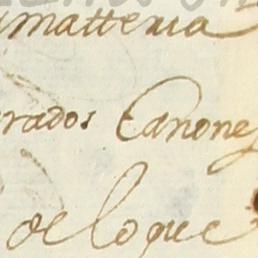 matteria
rados Canones
de lo que